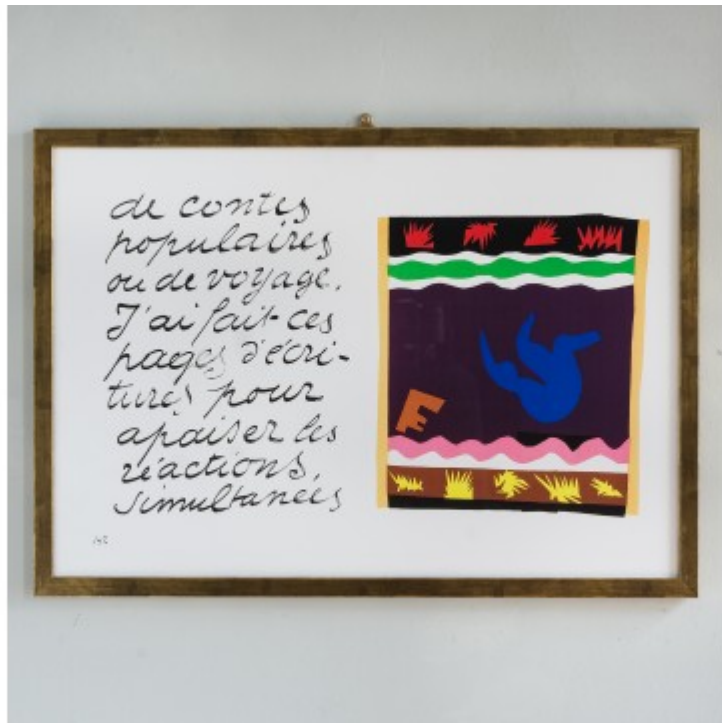 de contes
populaires
ou de voyage.
J'ai fait ces
pages d'écri-
tures pour
apaiser les
réactions
simultanées